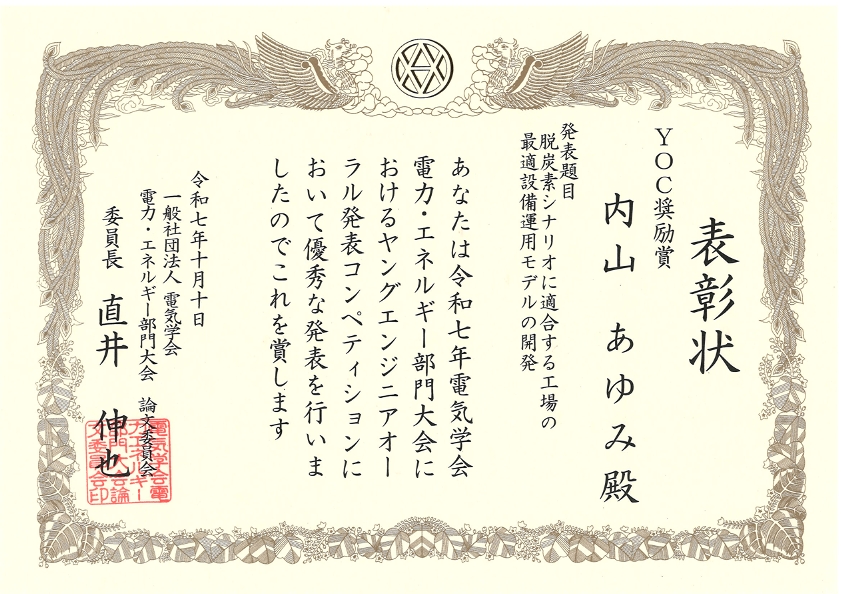 表彰状
YOC奨励賞
内山 あゆみ 殿
発表題目
脱炭素シナリオに適合する工場の
最適設備運用モデルの開発
あなたは令和七年電気学会
電力・エネルギー部門大会に
おけるヤングエンジニアオー
ラル発表コンペティションに
おいて優秀な発表を行いま
したのでこれを賞します
令和七年十月十日
一般社団法人 電気学会
電力・エネルギー部門大会 論文委員会
委員長 直井 伸也
電気学会電
力エネルギー
部門大会論
文委員会印